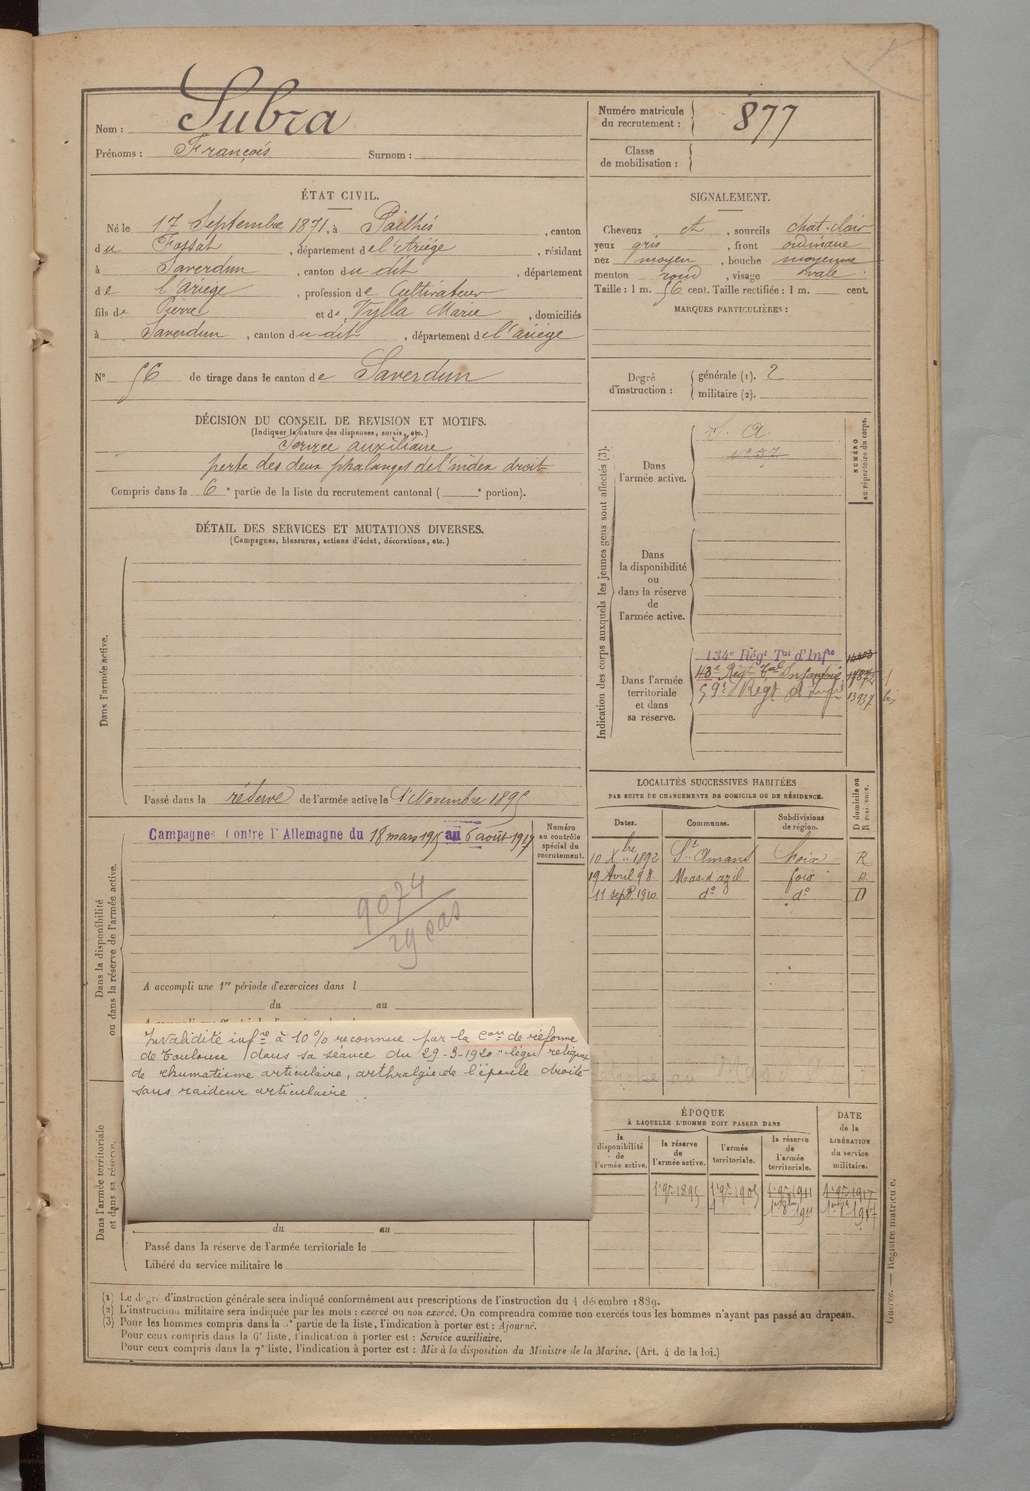 Nom : Subra
Prénoms : François Surnom :
Numéro matricule du recrutement : 877
Classe de mobilisation :
ÉTAT CIVIL.
Né le 17 Septembre 1871, à Pailhès, canton
du Fossat, département de l'Ariège, résidant
à Saverdun, canton du dit, département
de l'ariège, profession de Cultivateur
fils de Pierre et de Tylla Marie, domiciliés
à Saverdun, canton du dit, département de l'ariège
N° 56 de tirage dans le canton de Saverdun
SIGNALEMENT.
Cheveux et, sourcils chat. clair
yeux gris, front ordinaire
nez moyen, bouche moyenne
menton rond, visage ovale
Taille : 1 m. 56 cent. Taille rectifiée : 1 m. cent.
MARQUES PARTICULIÈRES :
Degré d'instruction : générale (1). 2
militaire (2).
DÉCISION DU CONSEIL DE REVISION ET MOTIFS.
(Indiquer la nature des dispenses, sursis, etc.)
Service auxiliaire
perte des deux phalanges de l'index droit
Compris dans la 6e partie de la liste du recrutement cantonal ( e portion).
DÉTAIL DES SERVICES ET MUTATIONS DIVERSES.
(Campagnes, blessures, actions d'éclat, décorations, etc.)
Dans l'armée active.
Passé dans la réserve de l'armée active le 1er Novembre 1895
Indication des corps auxquels les jeunes gens sont affectés (3).
NUMÉRO au répertoire du corps.
Dans l'armée active.
S. A.
Dans la disponibilité ou dans la réserve de l'armée active.
Dans l'armée territoriale et dans sa réserve.
134e Régt Tal d'Infie
43e Régt Tal Infanterie
59e Régt d'Infie 13937 bis
LOCALITÉS SUCCESSIVES HABITÉES
PAR SUITE DE CHANGEMENTS DE DOMICILE OU DE RÉSIDENCE.
D domicile ou R résidence.
Dates. Communes. Subdivisions de région.
10 Xbre 1892 St Amans Foix R
19 Avril 98 Mas d'azil foix R
11 sept 1910 do do D
Dans la disponibilité ou dans la réserve de l'armée active.
Campagnes contre l'Allemagne du 18 mars 1915 au 6 août 1917
Numéro au contrôle spécial du recrutement.
9074
29 cas
A accompli une 1re période d'exercices dans l
du au
Invalidité infre à 10% reconnue par la Con de réforme
de Toulouse dans sa séance du 29-3-1920 "léger reliquat
de rhumatisme articulaire, arthralgie de l'épaule droite
sans raideur articulaire
Dans l'armée territoriale et dans sa réserve.
du au
Passé dans la réserve de l'armée territoriale le
Libéré du service militaire le
ÉPOQUE
À LAQUELLE L'HOMME DOIT PASSER DANS
DATE de la LIBÉRATION du service militaire.
la disponibilité de l'armée active.
la réserve de l'armée active.
l'armée territoriale.
la réserve de l'armée territoriale.
1er 9bre 1895 1er 9bre 1905 1er 9bre 1911 1er 9bre 1917
(1) Le degré d'instruction générale sera indiqué conformément aux prescriptions de l'instruction du 4 décembre 1889.
(2) L'instruction militaire sera indiquée par les mots : exercé ou non exercé. On comprendra comme non exercés tous les hommes n'ayant pas passé au drapeau.
(3) Pour les hommes compris dans la 5e partie de la liste, l'indication à porter est : Ajourné.
Pour ceux compris dans la 6e liste, l'indication à porter est : Service auxiliaire.
Pour ceux compris dans la 7e liste, l'indication à porter est : Mis à la disposition du Ministre de la Marine. (Art. 4 de la loi.)
Registre matricule.